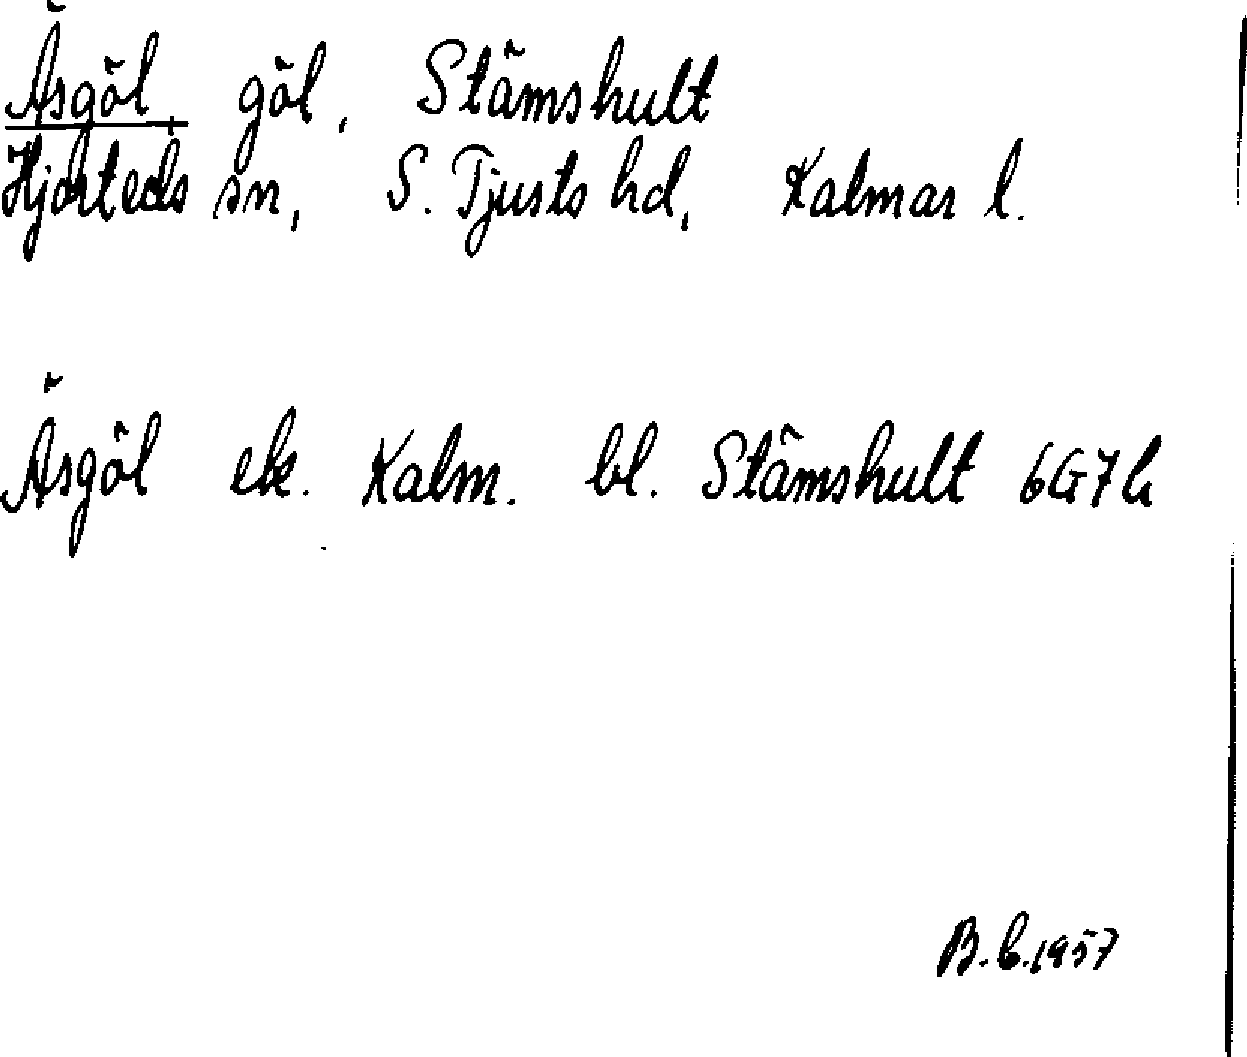 Äsgöl, göl, Stämshult
Hjorteds sn, S. Tjusts hd, Kalmar l.
Äsgöl ek. Kalm. bl. Stämshult 6G7h
1957